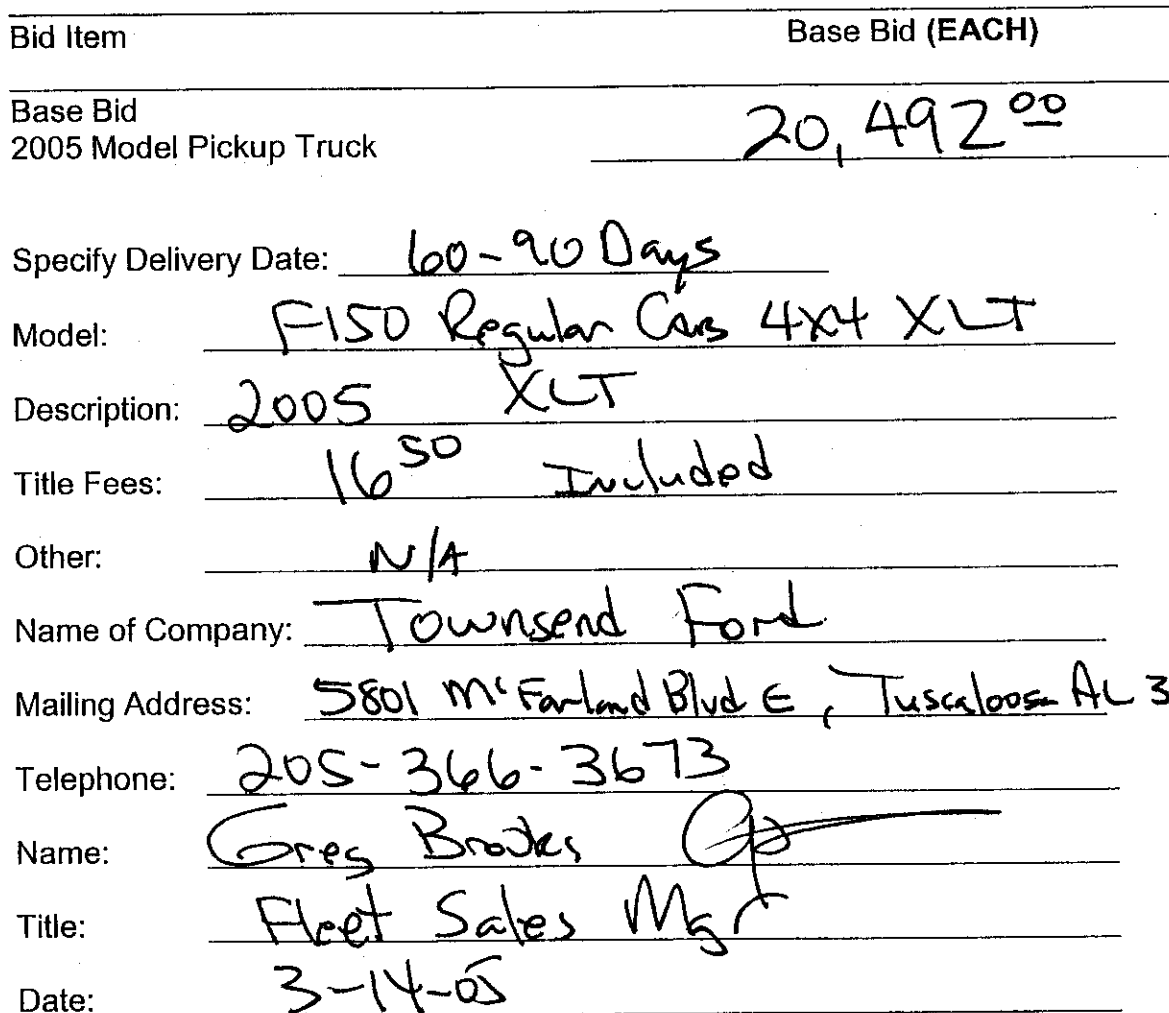 Bid Item Base Bid (EACH)
Base Bid
2005 Model Pickup Truck 20,492 00
Specify Delivery Date: 60-90 Days
Model: F150 Regular Cab 4x4 XLT
Description: 2005 XLT
Title Fees: 16 50 Included
Other: N/A
Name of Company: Townsend Ford
Mailing Address: 5801 McFarland Blvd E, Tuscaloosa AL 3
Telephone: 205-366-3673
Name: Greg Brooks
Title: Fleet Sales Mgr
Date: 3-14-05